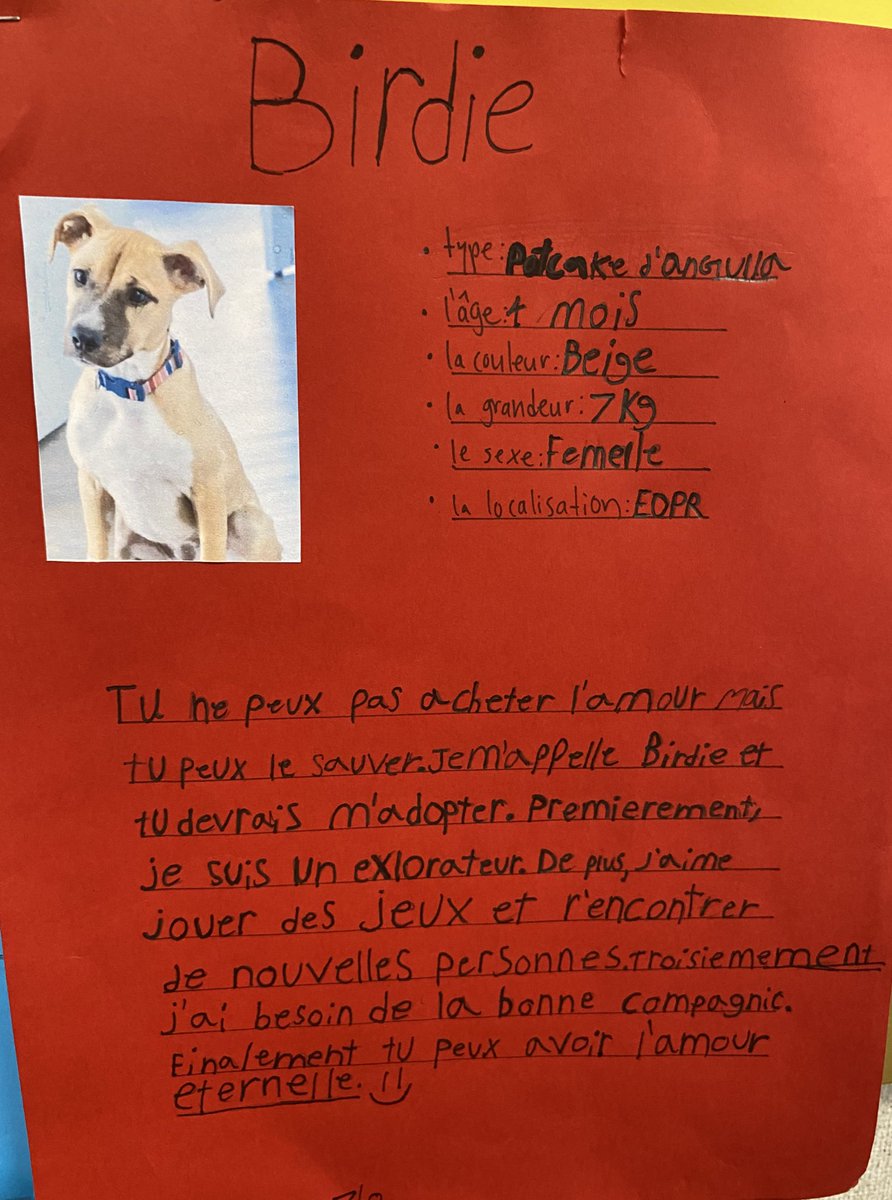 Birdie
• type: Potcake d'anGuilla
• l'âge: 4 mois
• la couleur: Beige
• la grandeur: 7 Kg
• le sexe: Femelle
• la localisation: EDPR
Tu ne peux pas acheter l'amour mais
tu peux le sauver. Je m'appelle Birdie et
tu devrais m'adopter. Premierement,
je suis un exlorateur. De plus, j'aime
jouer des jeux et r'encontrer
de nouvelles personnes. Troisiemement
j'ai besoin de la bonne compagnie.
Finalement tu peux avoir l'amour
eternelle. !!